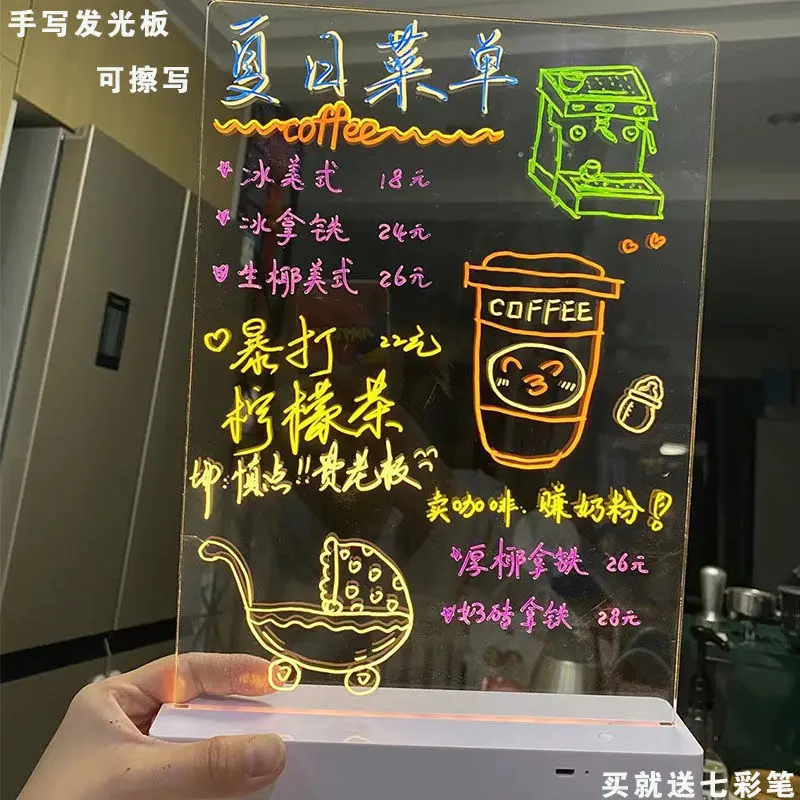 手写发光板
可擦写
夏日菜单
coffee
冰美式 18元
冰拿铁 24元
生椰美式 26元
暴打 22元
柠檬茶
坤:慎点!!费老板
COFFEE
卖咖啡.赚奶粉!?
厚椰拿铁 26元
奶砖拿铁 28元
买就送七彩笔